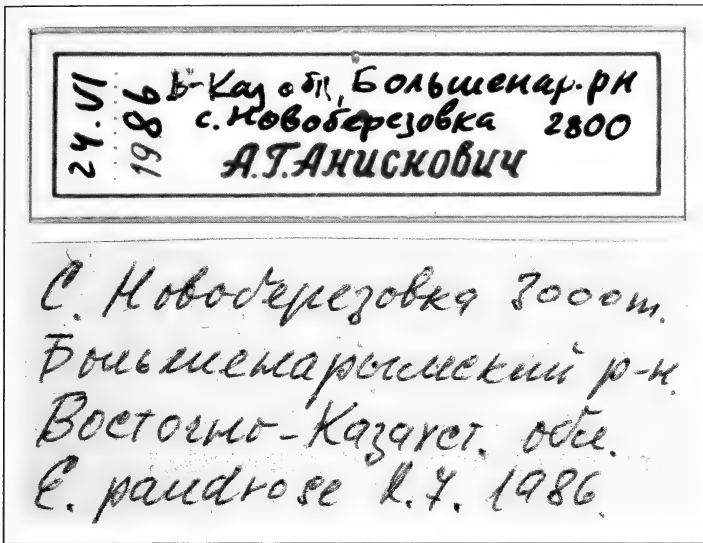 24.VI
1986
В-Каз обл, Большенар.рн
с. Новоберезовка 2800
А.Г.Анискович
С. Новоберезовка 3000m.
Большенарымский р-н.
Восточно-Казахст. обл.
E. pandrose 2.7. 1986.